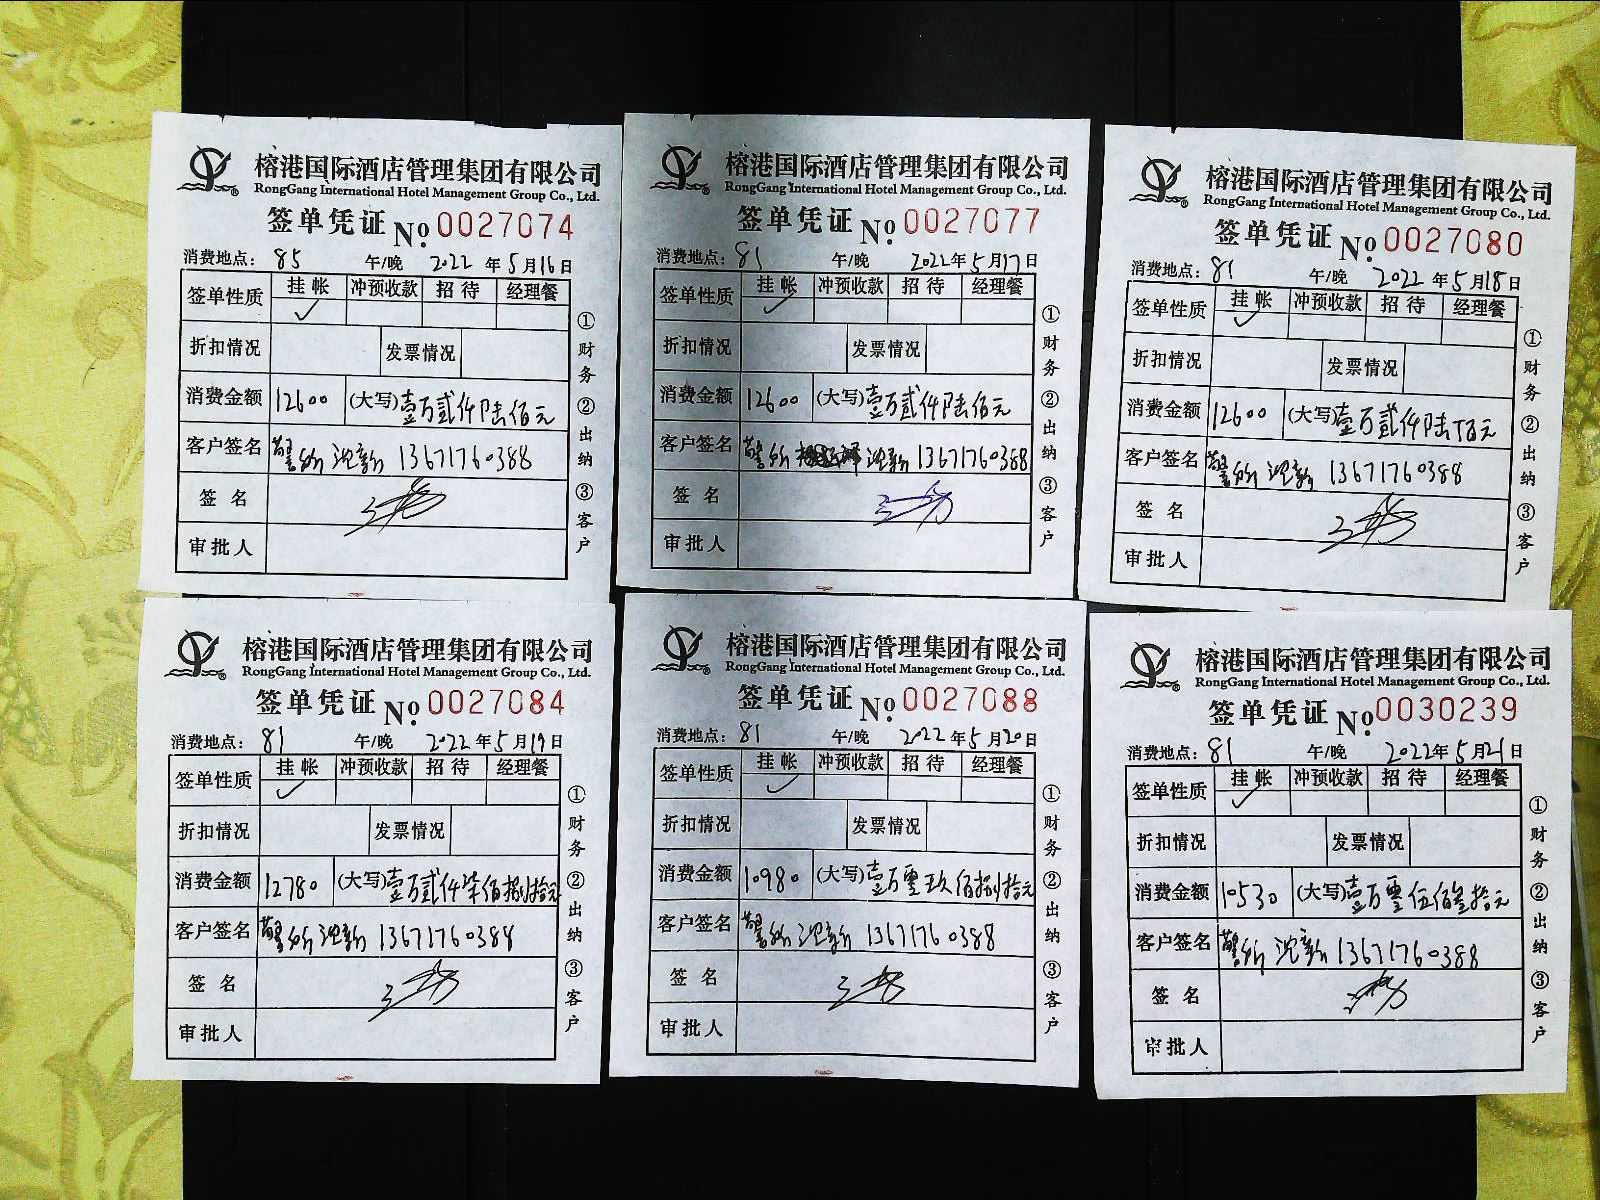 榕港国际酒店管理集团有限公司
RongGang International Hotel Management Group Co., Ltd.
签单凭证 No. 0027074
消费地点: 85 午/晚 2022 年 5 月 16 日
签单性质 挂帐 冲预收款 招待 经理餐
✓
折扣情况 发票情况
消费金额 12600 (大写)壹万贰仟陆佰元
客户签名 沈 13671760388
签名
审批人
①财务②出纳③客户
榕港国际酒店管理集团有限公司
RongGang International Hotel Management Group Co., Ltd.
签单凭证 No. 0027077
消费地点: 81 午/晚 2022 年 5 月 17 日
签单性质 挂帐 冲预收款 招待 经理餐
✓
折扣情况 发票情况
消费金额 12600 (大写)壹万贰仟陆佰元
客户签名 沈 13671760388
签名
审批人
①财务②出纳③客户
榕港国际酒店管理集团有限公司
RongGang International Hotel Management Group Co., Ltd.
签单凭证 No. 0027080
消费地点: 81 午/晚 2022 年 5 月 18 日
签单性质 挂帐 冲预收款 招待 经理餐
✓
折扣情况 发票情况
消费金额 12600 (大写)壹万贰仟陆佰元
客户签名 沈 13671760388
签名
审批人
①财务②出纳③客户
榕港国际酒店管理集团有限公司
RongGang International Hotel Management Group Co., Ltd.
签单凭证 No. 0027084
消费地点: 81 午/晚 2022 年 5 月 19 日
签单性质 挂帐 冲预收款 招待 经理餐
✓
折扣情况 发票情况
消费金额 12780 (大写)壹万贰仟柒佰捌拾元
客户签名 沈 13671760388
签名
审批人
①财务②出纳③客户
榕港国际酒店管理集团有限公司
RongGang International Hotel Management Group Co., Ltd.
签单凭证 No. 0027088
消费地点: 81 午/晚 2022 年 5 月 20 日
签单性质 挂帐 冲预收款 招待 经理餐
✓
折扣情况 发票情况
消费金额 10980 (大写)壹万零玖佰捌拾元
客户签名 沈 13671760388
签名
审批人
①财务②出纳③客户
榕港国际酒店管理集团有限公司
RongGang International Hotel Management Group Co., Ltd.
签单凭证 No. 0030239
消费地点: 81 午/晚 2022 年 5 月 21 日
签单性质 挂帐 冲预收款 招待 经理餐
✓
折扣情况 发票情况
消费金额 10530 (大写)壹万零伍佰叁拾元
客户签名 沈 13671760388
签名
审批人
①财务②出纳③客户